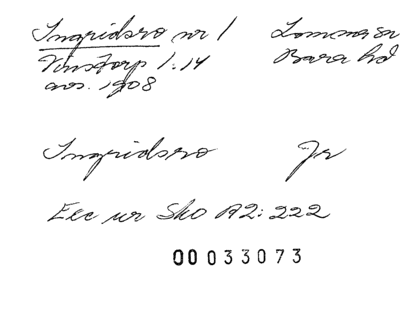 Ingridsro nr 1 Lomma sn
Vinstorp 1:14 Bara hd
avs. 1908
Ingridsro Jr
Exc ur Sko A2: 222
00033073